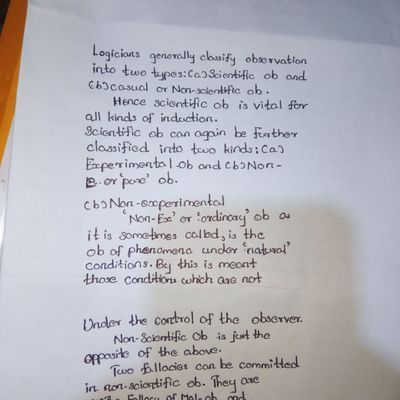 Logicians generally classify observation
into two types:(a) Scientific ob and
(b) casual or Non-scientific ob.
Hence scientific ob is vital for
all kinds of induction.
Scientific ob can again be further
classified into two kinds:(a)
Experimental ob and (b) Non-
E. or 'pure' ob.
(b) Non-experimental
'Non-Ex' or 'ordinary' ob as
it is sometimes called, is the
ob of phenomena under 'natural'
conditions. By this is meant
those conditions which are not
Under the control of the observer.
Non-Scientific Ob is just the
opposite of the above.
Two fallacies can be committed
in non-scientific ob. They are
Fallacy of Mal-ob and